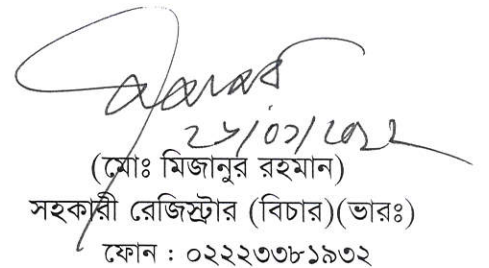 (মোঃ মিজানুর রহমান)
সহকারী রেজিস্ট্রার (বিচার)(ভারঃ)
ফোন : ০২২২৩৩৮১৯৩২